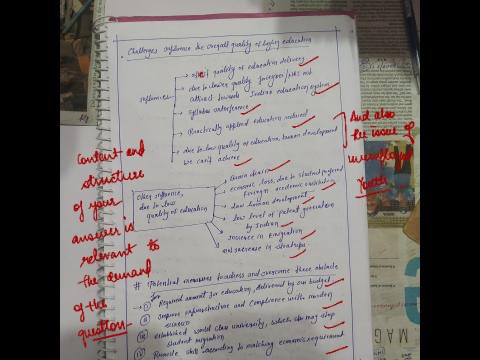 Challenges influence the overall quality of higher education
influences
quality of education delivery
due to lower quality foreigners
attract towards Indian education system
Syllabus interference
Practically applied education reduced
due to low quality of education human development
we can't achieve
And also
the issue of
unemployed
Youth
Content and
structure
of your
answer is
relevant to
the demand
of the
question
Other influence,
due to low
quality of education
Brain drain
economic loss, due to student preferred
foreign academic institution
Low human development
low level of patent generation
by Indian
increase in Emigration
and increase in
# Potential measures to address and overcome these obstacle
for
(i) Required amount for education, delivered by our budget
(ii) Improve infrastructure and compliance with modern
(iii) established world class university, which also may stop
student migration
(iv) Provide skill according to matching economic requirement